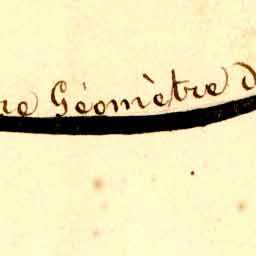 re Géomètre d